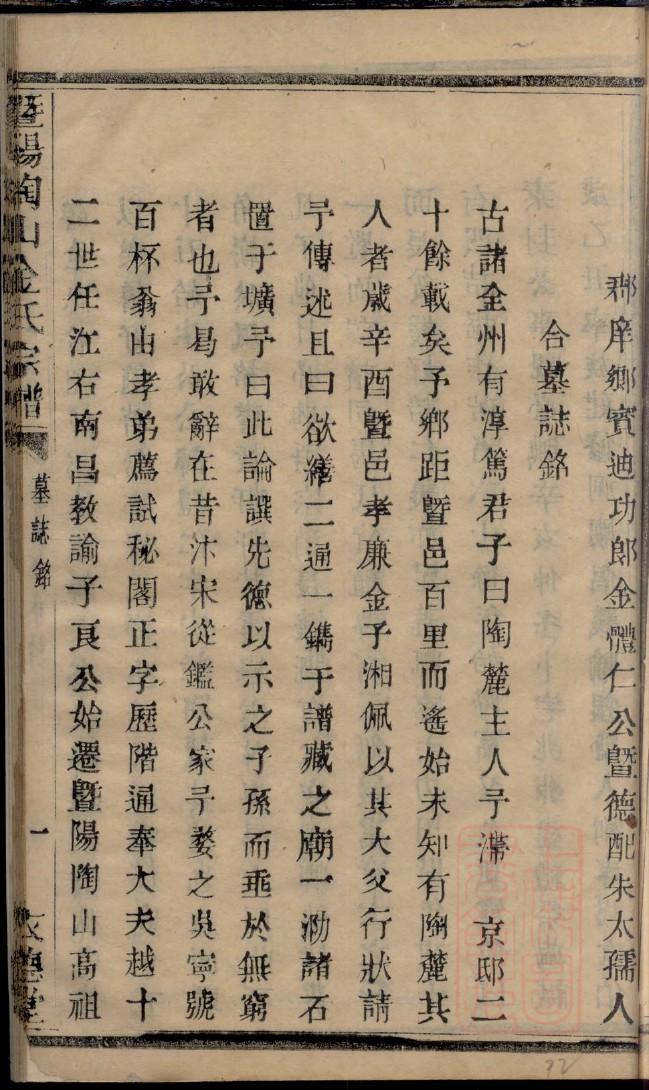 郡庠鄉賓迪功郎金體仁公暨德配朱太孺人
合墓誌銘
古諸全州有淳篤君子曰陶麓主人予滯 京邸二
十餘載矣予鄉距暨邑百里而遙始未知有陶麓其
人者歲辛酉暨邑孝廉金子湘佩以其大父行狀請
予傳述且曰欲繕二通一鐫于譜藏之廟一泐諸石
置于壙予曰此論譔先德以示之子孫而垂於無窮
者也予曷敢辭在昔汴宋從鑑公家于婺之吳寧號
百杯翁由孝弟薦試秘閣正字歷階通奉大夫越十
二世任江右南昌教諭子良公始遷暨陽陶山高祖
暨陽陶山金氏宗譜
墓誌銘
一
友德堂
32